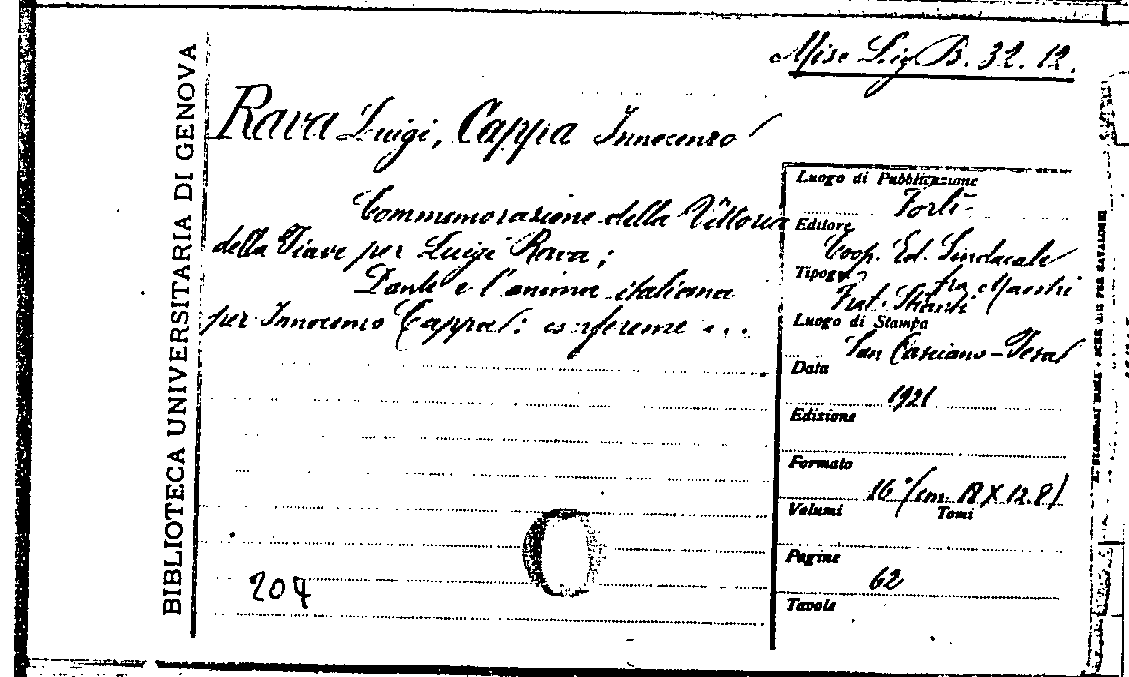 Misc Lig B. 32. 12.
BIBLIOTECA UNIVERSITARIA DI GENOVA
Rava Luigi, Cappa Innocenzo
Commemorazione della Vittoria
della Piave per Luigi Rava;
Dante e l'anima italiana
per Innocenzo Cappa: conferenze ...
Luogo di Pubblicazione
Forlì
Editore
Coop. Ed. Sindacale
fra Maestri
Tipogr.
Frat. Stianti
Luogo di Stampa
San Casciano - Pesa
Data
1921
Edizione
Formato
16° (cm. 18 X 12.8)
Volumi Tomi
Pagine
62
Tavole
204